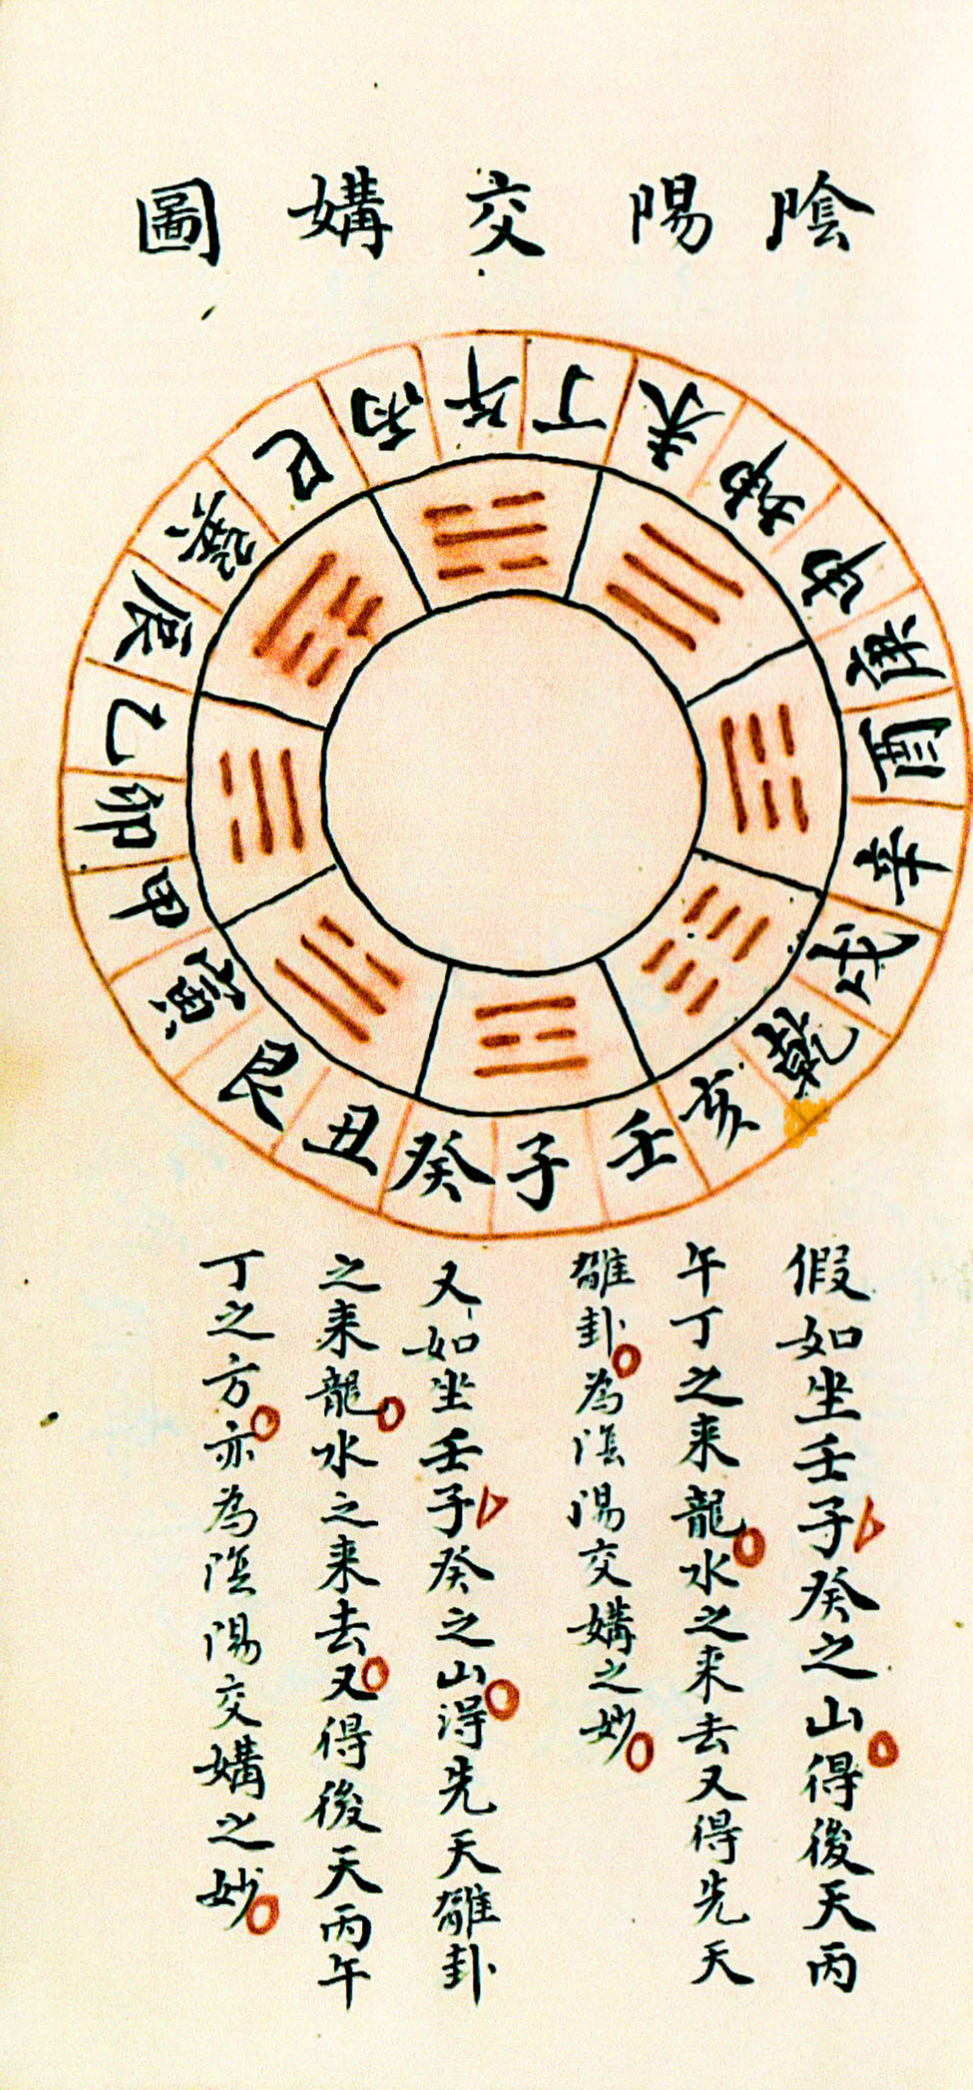 陰陽交媾圖
午
丁
未
坤
申
庚
酉
辛
戌
乾
亥
壬
子
癸
丑
艮
寅
甲
卯
乙
辰
巽
巳
丙
假如坐壬子癸之山得後天丙
午丁之来龍水之来去又得先天
離卦為陰陽交媾之妙
又如坐壬子癸之山得先天離卦
之来龍水之来去又得後天丙午
丁之方亦為陰陽交媾之妙